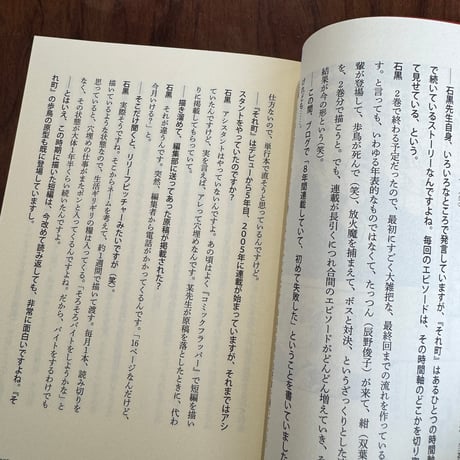 ――石黒先生自身、いろいろなところで発言していますが、『それ町』はあるひとつの時間
で続いているストーリーなんですよね。毎回のエピソードは、その時間軸のどこかを切り
て見せている、という。
石黒　2巻で終わる予定だったので、最初にすごく大雑把な、最終回までの流れを作っ
す。と言っても、いわゆる年表的なものではなくて、たっつん（辰野俊子）が来て、紺（双葉
輩が登場して、歩鳥が死んで（笑）、放火魔を捕まえて、ボスと対決、というざっくりとした
を、2巻分で描こうと。でも、連載が長引くにつれ合間のエピソードがどんどん増えていき、そ
結果が今の形という（笑）。
――この間、ブログで「8年間連載していて、初めて失敗した」ということを書いていました
仕方ないので、単行本で直そうと思っているんですけど。
――『それ町』はデビューから5年目、2005年に連載が始まっていますが、それまではアシ
スタントをやっていたのですか？
石黒　アシスタントはやっていないんです。あの頃はよく『コミックフラッパー』で短編を描い
ていたんですけど、実を言えば、アレって穴埋めなんです。某先生が原稿を落としたときに、代わ
りに掲載してもらっていて。
――描き溜めて、編集部に送ってあった原稿が掲載された？
石黒　それが違うんです。突然、編集者から電話がかかってくるんです。「16ページなんだけど、
今月いける？」と。
――そこだけ聞くと、リリーフピッチャーみたいですが（笑）。
石黒　実際そうですね。そこからネームを考えて、約1週間で描いて渡す。毎月1本、読み切りを
描いている状態だったので、生活ギリギリの糧は入ってくる。「そろそろバイトをしようかな」と
思っていると、穴埋めの仕事がまたポンと入ってくるんですよね。だから、バイトをするわけでも
なく、その状態が大体1年半くらい続いたんですよ。
――とはいえ、この時期に描いた短編は、今改めて読み返しても、非常に面白いですよね。『そ
れ町』の歩鳥の原型も既に登場していますし。